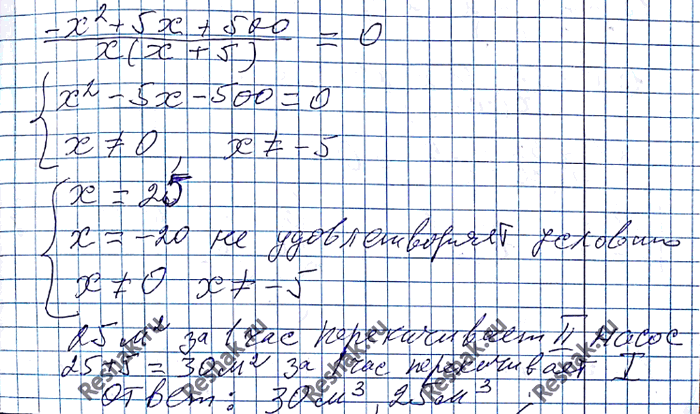 (-x² + 5x + 500) / (x(x + 5)) = 0
{ x² - 5x - 500 = 0
x ≠ 0, x ≠ -5
{ x = 25
x = -20 не удовлетворят условию
x ≠ 0 x ≠ -5
25 м³ за 1 час перекачивает II насос
25+5 = 30 м² за 1 час перекачивает I
Ответ: 30 м³, 25 м³.
Reshak.ru
Reshak.ru
Reshak.ru
Reshak.ru
Reshak.ru